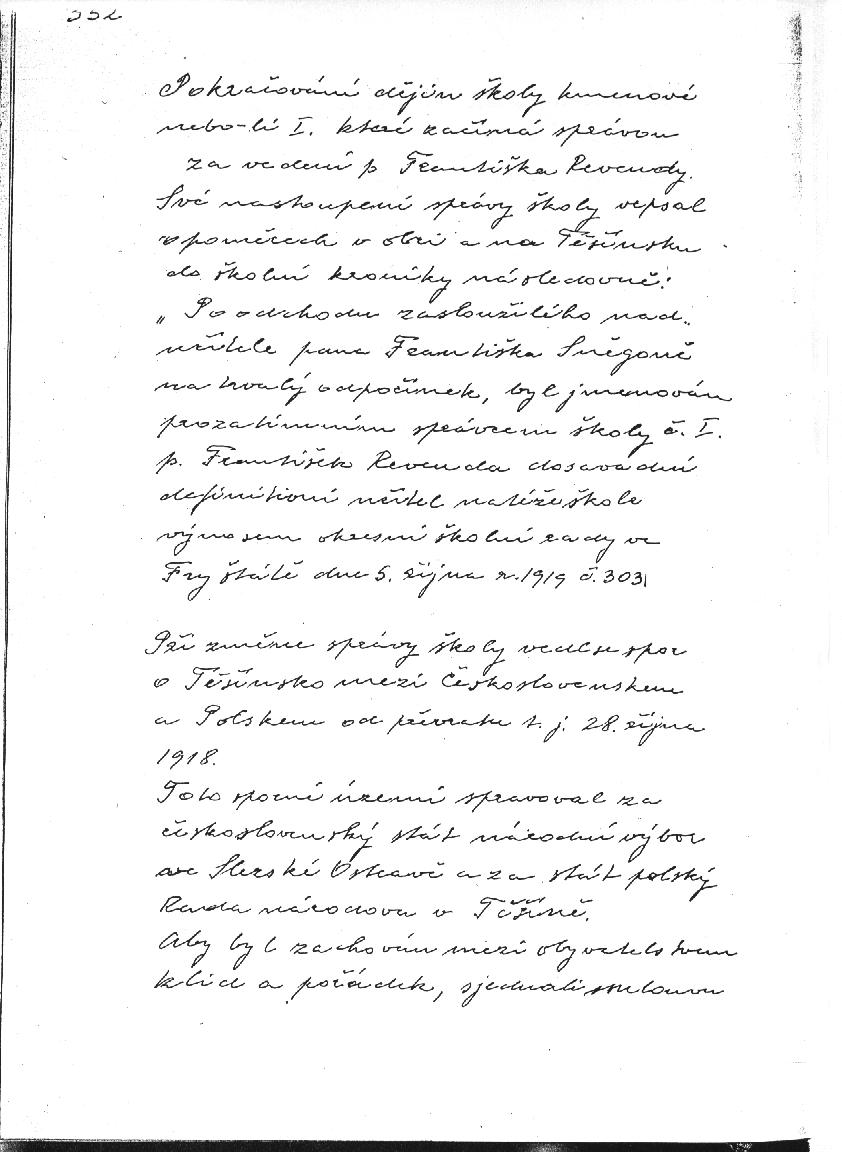 332
Pokračování dějin školy kmenové
nebo-li I. které začíná správou
za vedení p Františka Revendy.
Své nastoupení správy školy vepsal
o poměrech v obci a na Těšínsku
do školní kroniky následovně:
„ Po odchodu zasloužilého nad„
učitele pana Františka Sněgoně
na trvalý odpočinek, byl jmenován
prozatímním správcem školy č. I.
p. František Revenda dosavadní
definitivní učitel na téže škole
výnosem okresní školní rady ve
Fryštátě dne 5. října r. 1919 č. 3031
Při změně správy školy vedl se spor
o Těšínsko mezi Československem
a Polskem od převratu t. j. 28. října
1918.
Toto sporné území spravoval za
československý stát národní výbor
ve Slezské Ostravě a za stát polský
Rada národova v Těšíně.
Aby byl zachován mezi obyvatelstvem
klid a pořádek, sjednali smlouvu